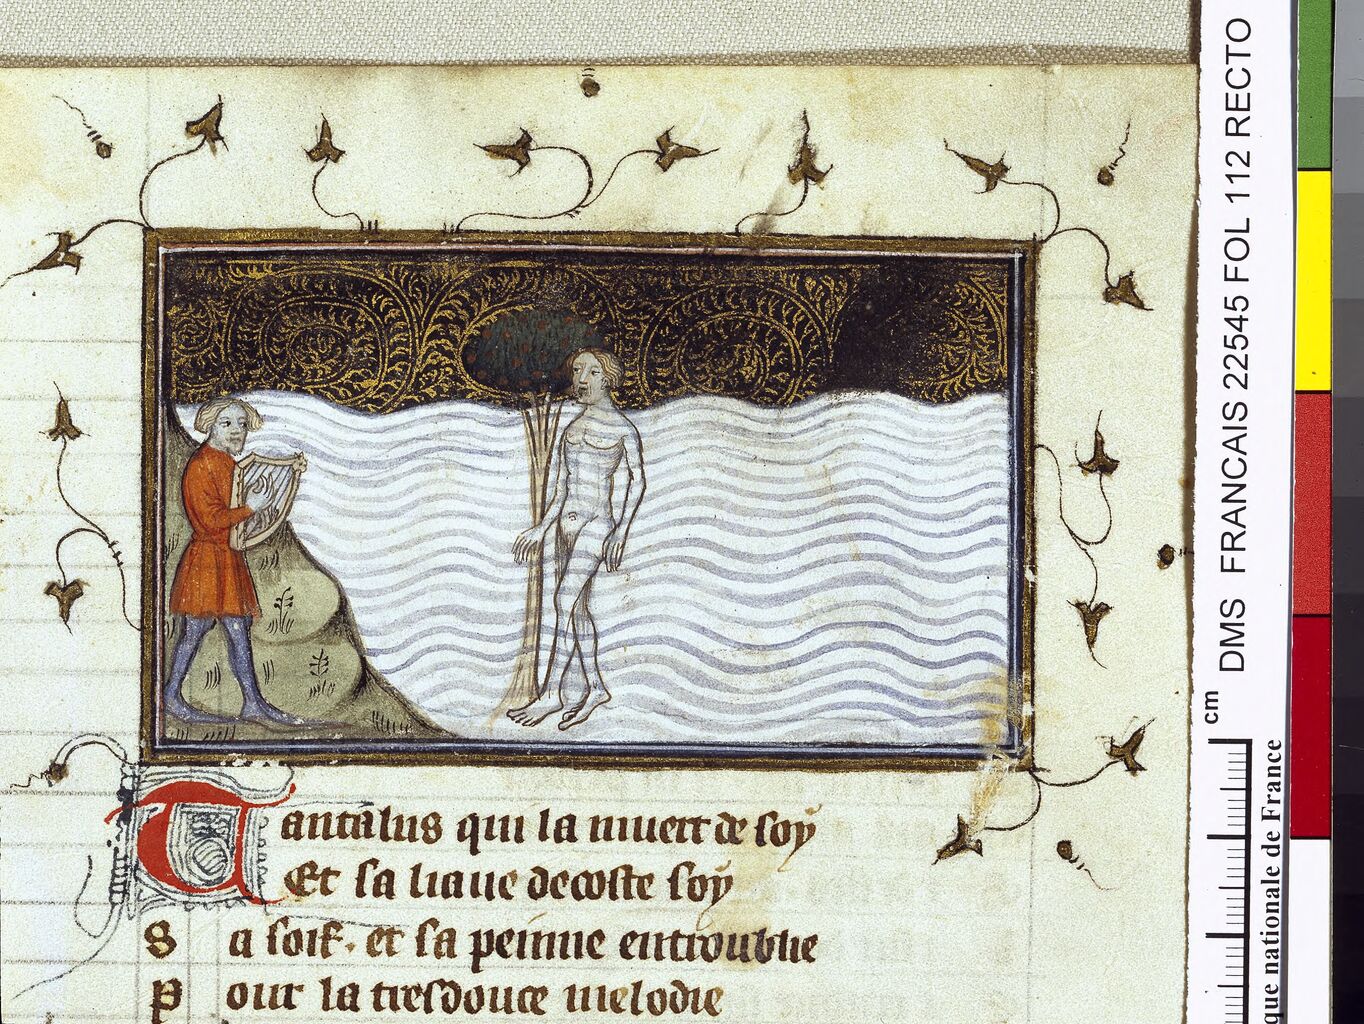 Tantalus qui la muert de soy
Et sa liaue decoste soy
Sa soif. et sa peinne entroublie
Pour la tresdouce melodie
DMS FRANCAIS 22545 FOL 112 RECTO
cm
que nationale de France